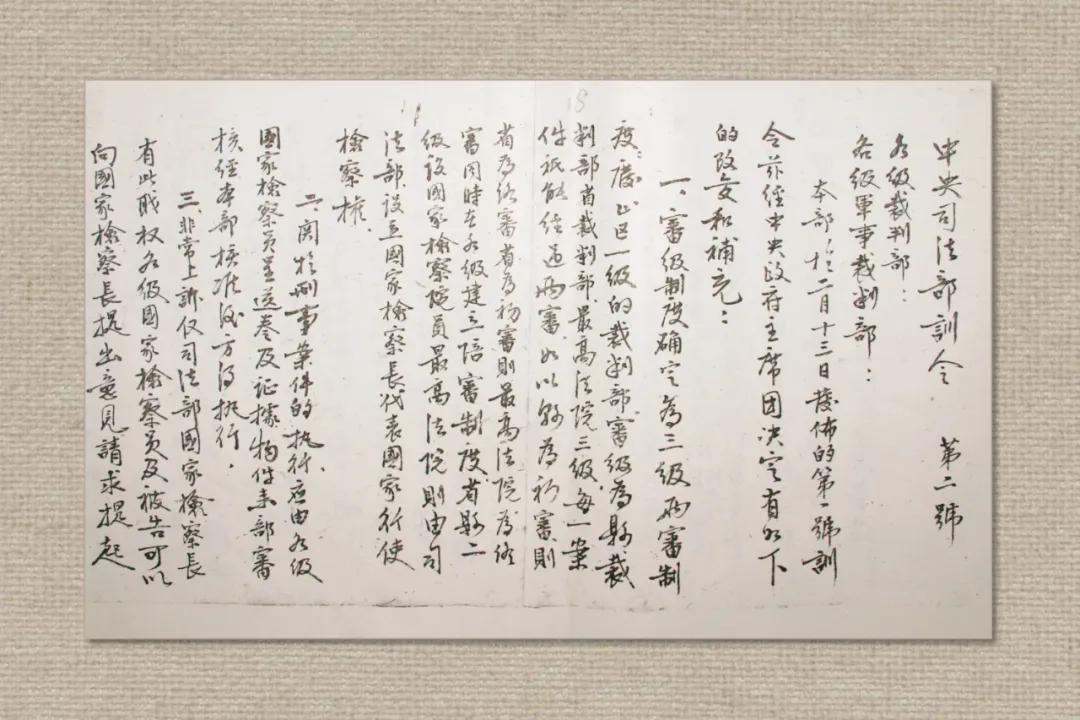 中央司法部訓令 第二號
各级裁判部：
各级軍事裁判部：
本部於二月十三日發佈的第一號訓
令茲经中央政府主席团决定有如下
的改变和補充：
一、審级制度确定為三级两審制
度，廢止区一级的裁判部，審级為縣裁
判部省裁判部最高法院三级每一案
件祇能经过两審，如以縣為初審，則
省為終審省為初審則最高法院為終
審同時在各级建立陪審制度，省縣二
级設國家檢察员最高法院則由司
法部設立國家檢察長代表國家行使
檢察權、
二、関於刑事案件的执行应由各级
國家檢察员呈送卷及证據物件来部審
核经本部核准後方得执行，
三、非常上訴仅司法部國家檢察長
有此职权各级國家檢察员及被告可以
向國家檢察長提出意見請求提起
18